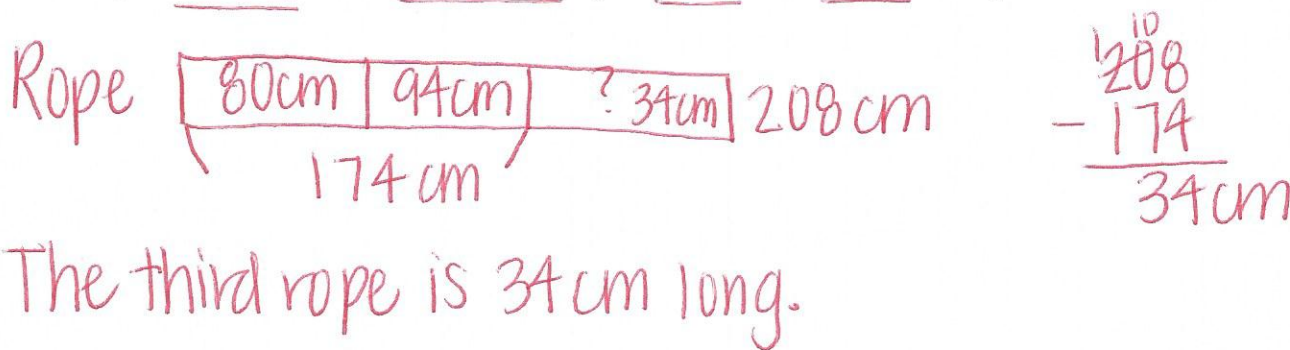 Rope 80cm 94cm ? 34cm 208cm
174cm
1 10
208
- 174
34cm
The third rope is 34cm long.